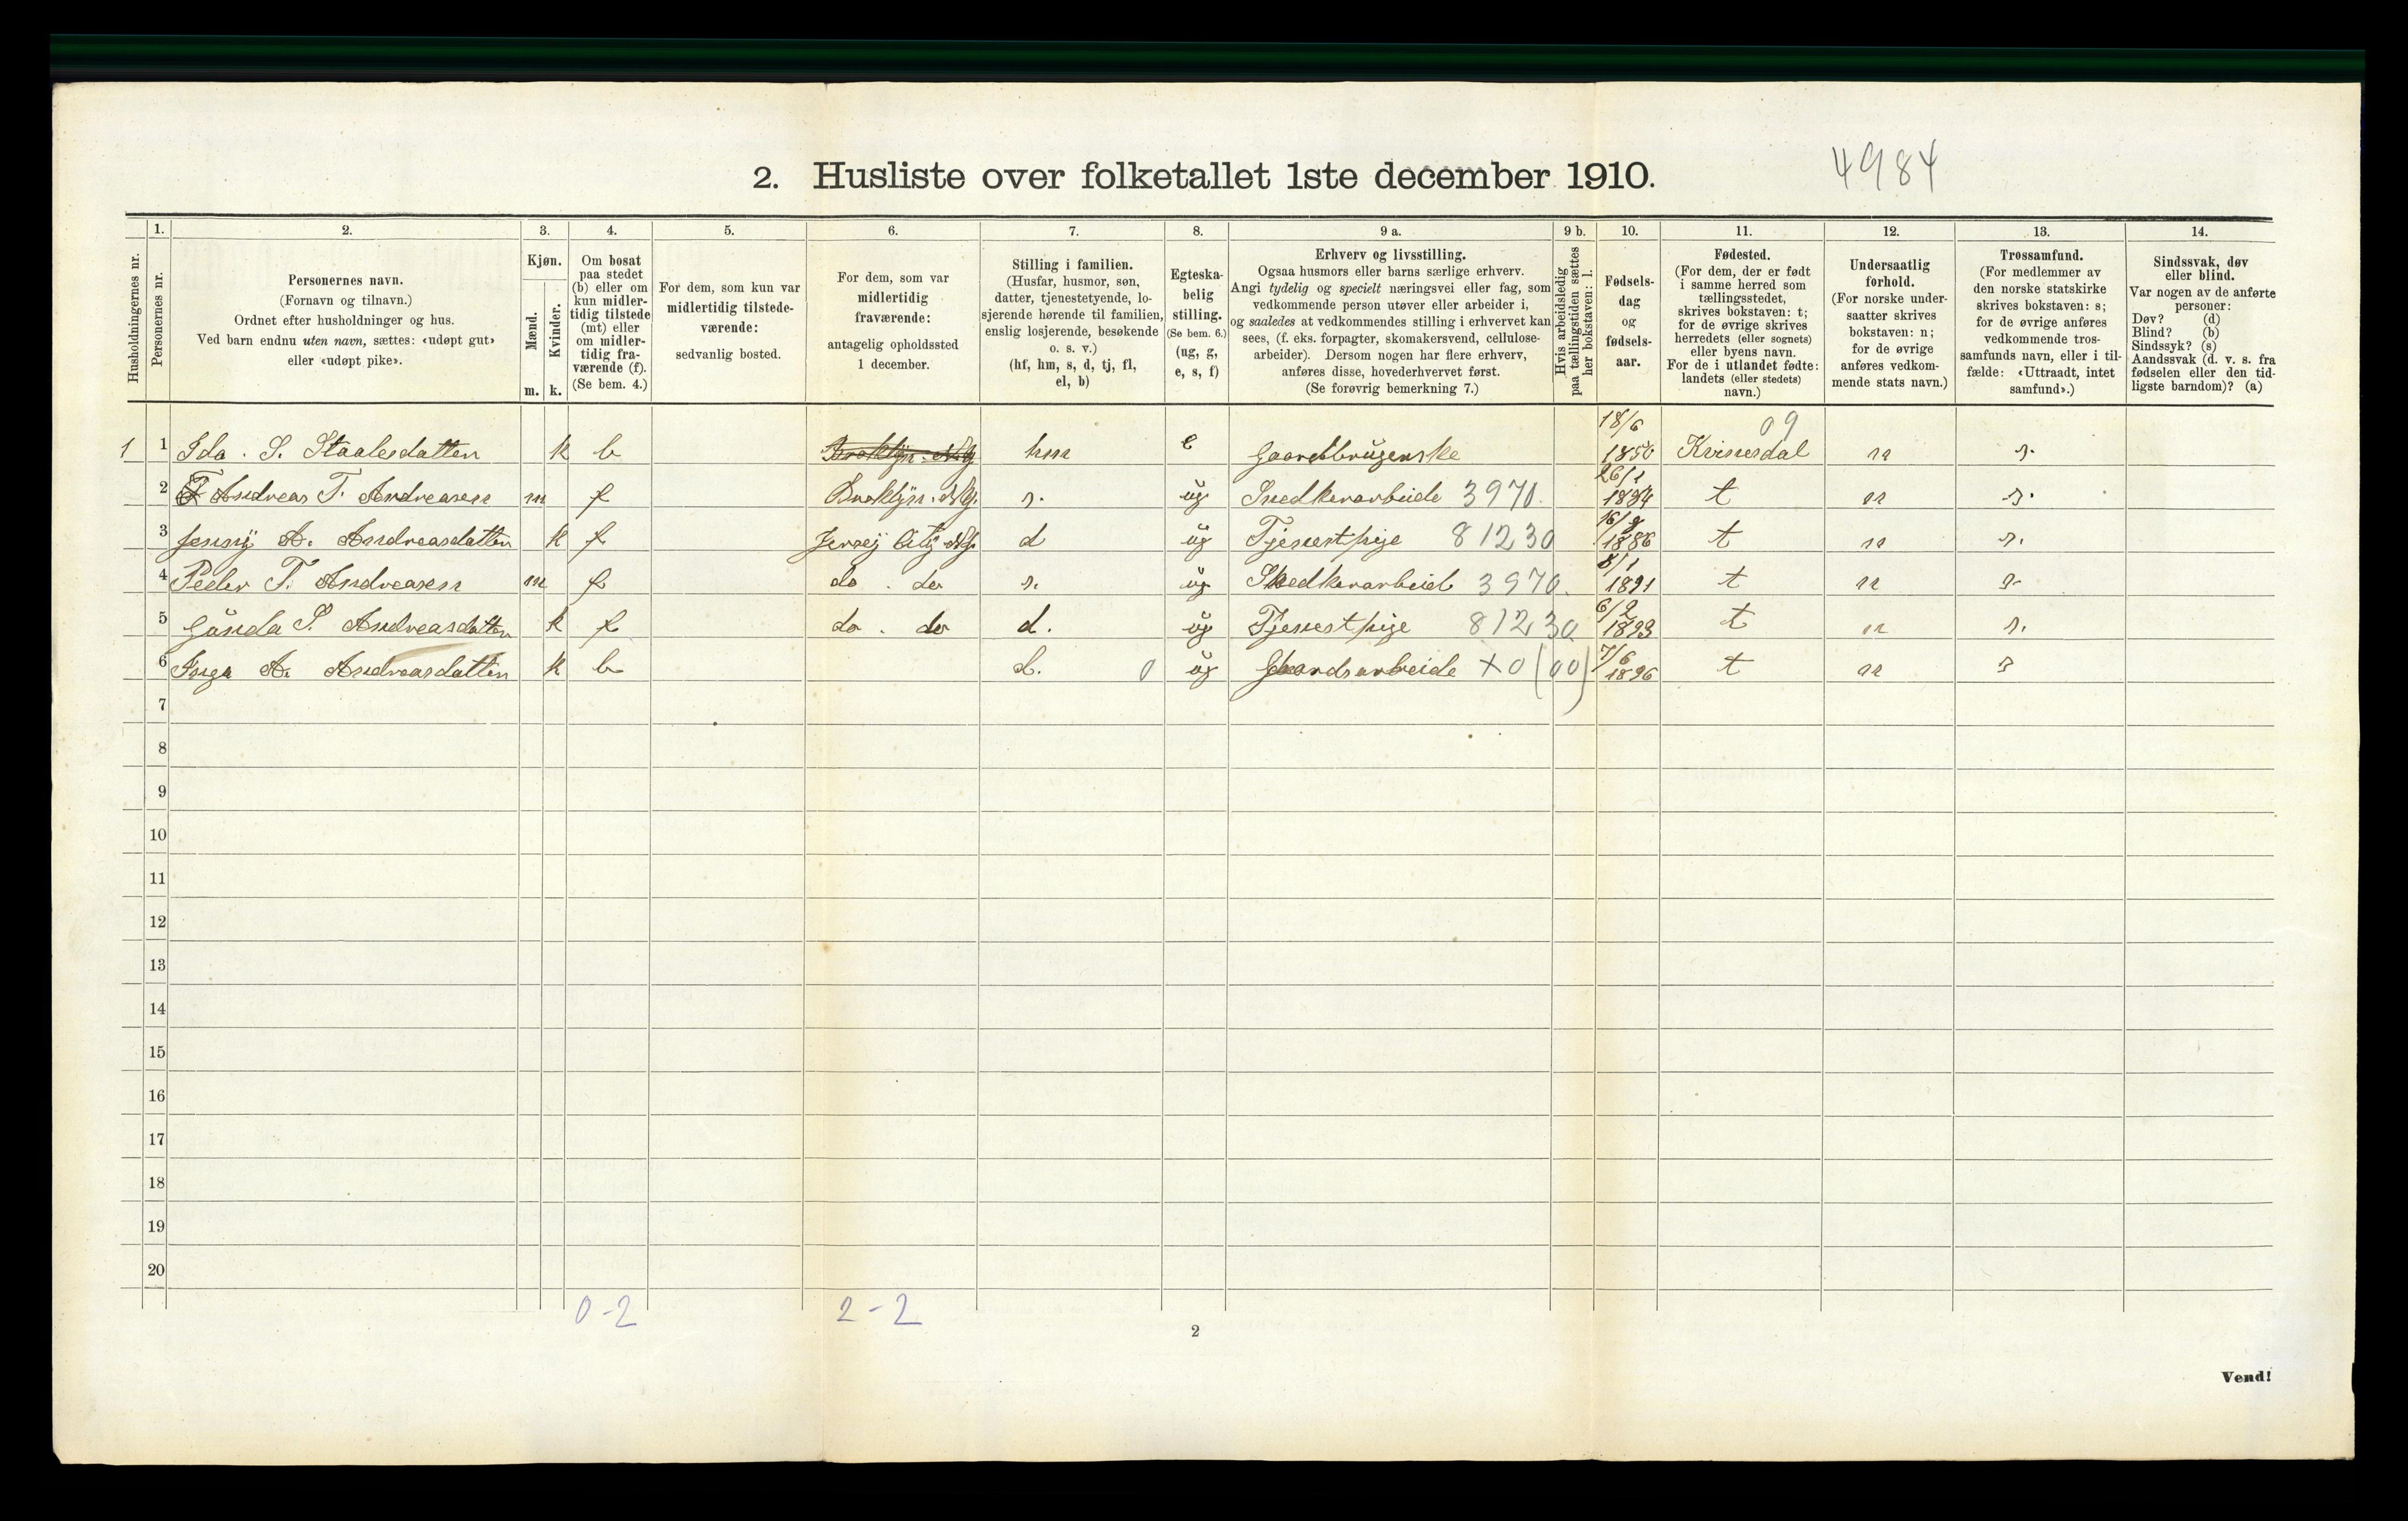 2. Husliste over folketallet 1ste december 1910.
4984
Husholdningernes nr.
1.
Personernes nr.
2.
Personernes navn.
(Fornavn og tilnavn.)
Ordnet efter husholdninger og hus.
Ved barn endnu uten navn, sættes: «udøpt gut»
eller «udøpt pike».
3.
Kjøn.
Mænd.
Kvinder.
m. k.
4.
Om bosat
paa stedet
(b) eller om
kun midler-
tidig tilstede
(mt) eller
om midler-
tidig fra-
værende (f).
(Se bem. 4.)
5.
For dem, som kun var
midlertidig tilstede-
værende:
sedvanlig bosted.
6.
For dem, som var
midlertidig
fraværende:
antagelig opholdssted
1 december.
7.
Stilling i familien.
(Husfar, husmor, søn,
datter, tjenestetyende, lo-
sjerende hørende til familien,
enslig losjerende, besøkende
o. s. v.)
(hf, hm, s, d, tj, fl,
el, b)
8.
Egteska-
belig
stilling.
(Se bem. 6.)
(ug, g,
e, s, f)
9 a.
Erhverv og livsstilling.
Ogsaa husmors eller barns særlige erhverv.
Angi tydelig og specielt næringsvei eller fag, som
vedkommende person utøver eller arbeider i,
og saaledes at vedkommendes stilling i erhvervet kan
sees, (f. eks. forpagter, skomakersvend, cellulose-
arbeider). Dersom nogen har flere erhverv,
anføres disse, hovederhvervet først.
(Se forøvrig bemerkning 7.)
9 b.
Hvis arbeidsledig
paa tællingstiden sættes
her bokstaven: l.
10.
Fødsels-
dag
og
fødsels-
aar.
11.
Fødested.
(For dem, der er født
i samme herred som
tællingsstedet,
skrives bokstaven: t;
for de øvrige skrives
herredets (eller sognets)
eller byens navn.
For de i utlandet fødte:
landets (eller stedets)
navn.)
12.
Undersaatlig
forhold.
(For norske under-
saatter skrives
bokstaven: n;
for de øvrige
anføres vedkom-
mende stats navn.)
13.
Trossamfund.
(For medlemmer av
den norske statskirke
skrives bokstaven: s;
for de øvrige anføres
vedkommende tros-
samfunds navn, eller i til-
fælde: «Uttraadt, intet
samfund».)
14.
Sindssvak, døv
eller blind.
Var nogen av de anførte
personer:
Døv? (d)
Blind? (b)
Sindssyk? (s)
Aandssvak (d. v. s. fra
fødselen eller den tid-
ligste barndom)? (a)
1 1 Ida . S. Staalesdatter k b Broklÿn. hm e Gaardbrugerske 18/6 1850 Kvinesdal 09 n s.
2 Andreas T. Andreasen m f Broklÿn. s. ug Snedkerarbeide 3970. 26/1 1884 t n s.
3 Jennÿ A. Andreasdatter k f Jersey Citÿ d ug Tjenestpige 81230 1886 t n s.
4 Peder T. Andreasen m f do . do s. ug Snedkerarbeid 3970. 8/1 1891 t n s
5 Gunda S. Andreasdatter k f do . do d. ug Tjenestpige 81230 6/2 1893 t n s.
6 Inga A. Andreasdatter k b d. 0 ug Gaardsarbeide X0 (00) 7/6 1896 t n s
7
8
9
10
11
12
13
14
15
16
17
18
19
20
0-2
2-2
2
Vend!